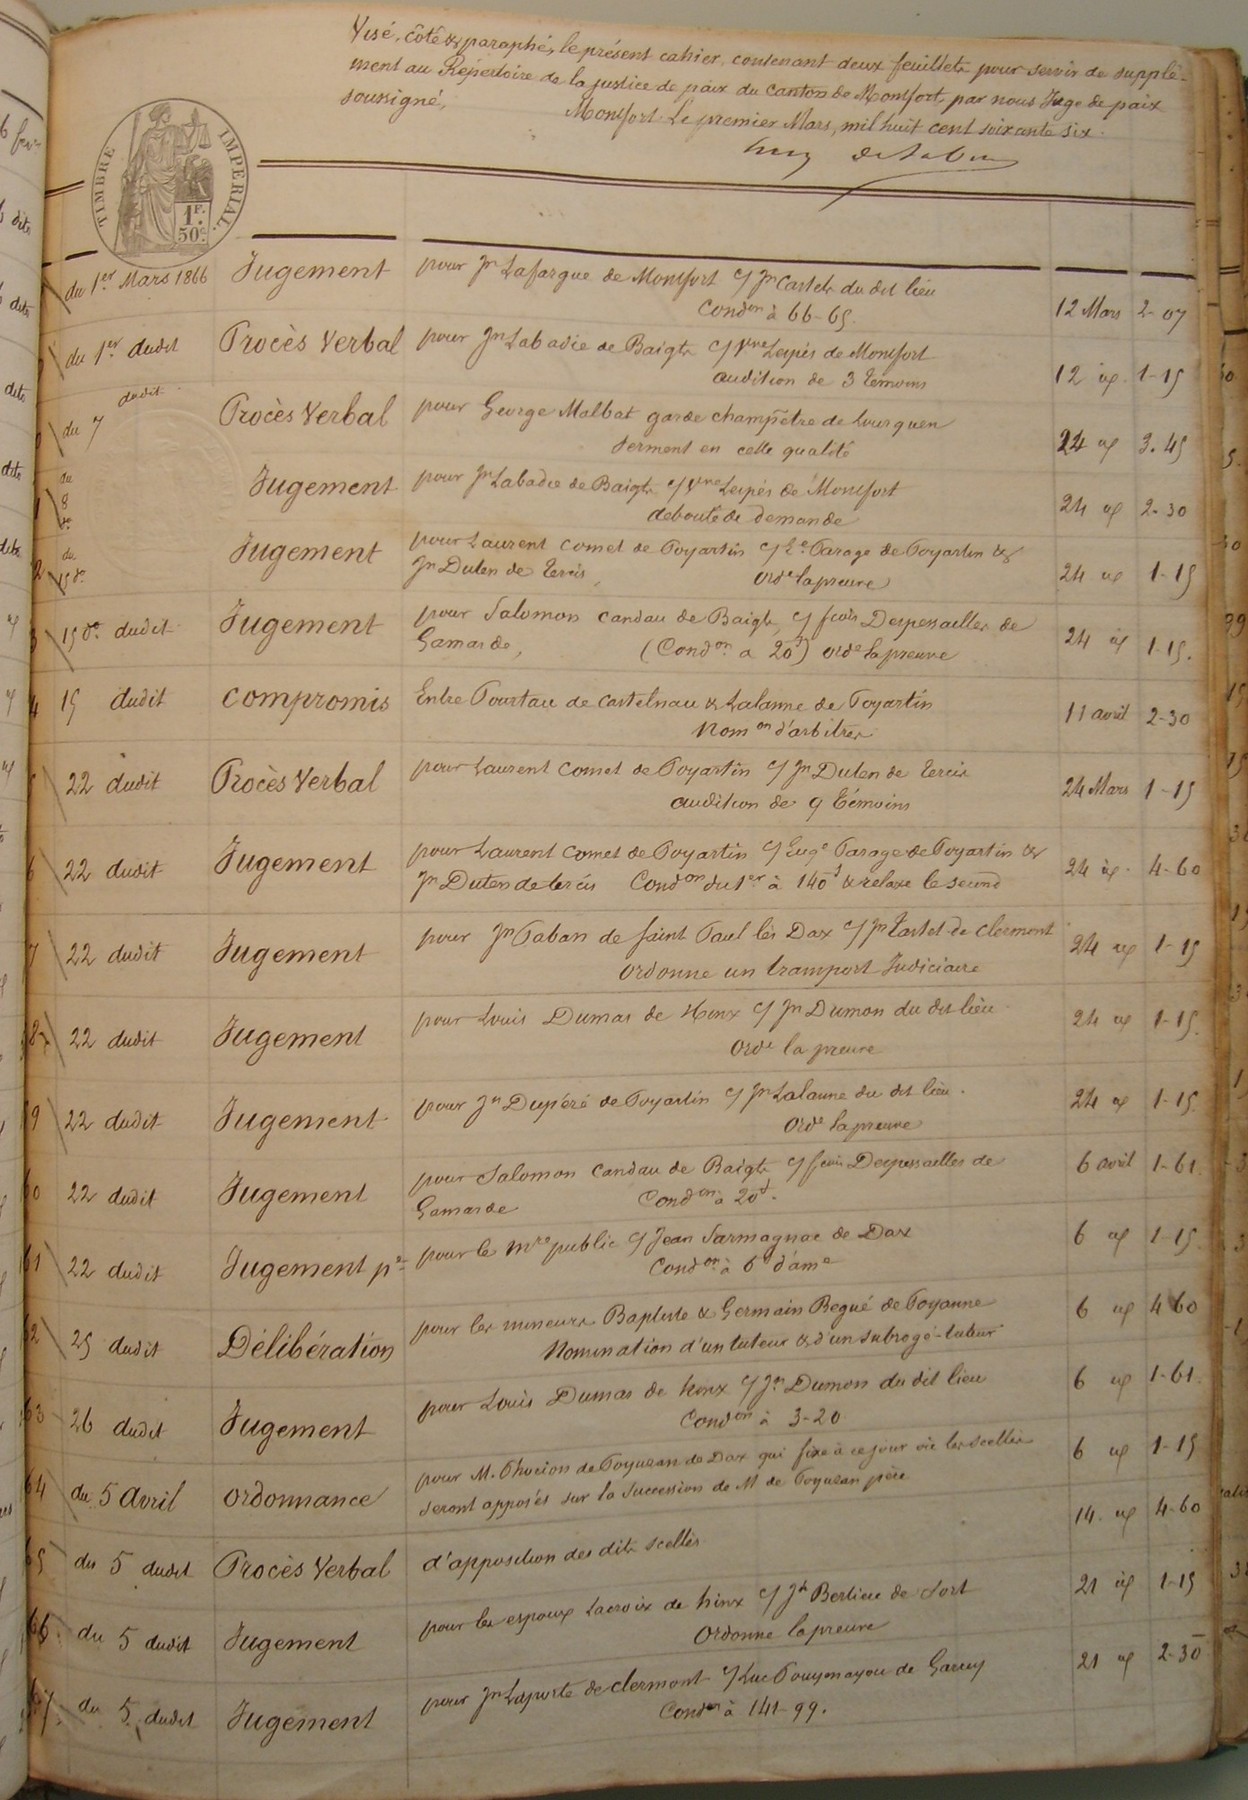 Visé, côté & paraphé, le présent cahier, contenant deux feuillets pour servir de supplé-
ment au Répertoire de la justice de paix du canton de Montfort, par nous Juge de paix
soussigné,
Montfort Le premier Mars, mil huit cent soixante six.
TIMBRE IMPERIAL.
1F.
50c.
du 1er Mars 1866 Jugement pour Jn Lafargue de Montfort c/ Jn Castets du dit lieu
Condon à 66-65. 12 Mars 2-07
du 1er dudit Procès Verbal pour Jn Labadie de Baigts c/ Vve Lespès de Montfort
audition de 3 témoins 12 id. 1-15
du 7 dudit Procès Verbal pour George Malbat garde champêtre de Lourquen
serment en cette qualité 24 id 3.45
du 8 do Jugement pour Jn Labadie de Baigts c/ Vve Lespès de Montfort
debouté de demande 24 id 2-30
du 15 do Jugement pour Laurent Comet de Poyartin c/ Parage de Poyartin &
Jn Duten de Tercis, orde la preuve 24 id 1-15
15 do dudit Jugement pour Salomon Candau de Baigts, c/ fcois Despessailles de
Gamarde, (Condon a 20f) orde la preuve 24 id 1-15.
4 15 dudit Compromis Entre Pourtau de Castelnau & Lalanne de Poyartin
Nomon d'arbitres 11 avril 2-30
22 dudit Procès Verbal pour Laurent Comet de Poyartin c/ Jn Duten de Tercis
audition de 9 témoins 24 Mars 1-15
6 22 dudit Jugement pour Laurent Comet de Poyartin c/ Euge Parage de Poyartin &
Jn Duten de tercis Condon du 1er à 140f & relaxe le second 24 id. 4-60
7 22 dudit Jugement pour Jn Taban de saint Paul lès Dax c/ Jn Tastet de Clermont
ordonne un transport Judiciaire 24 id 1-15
8 22 dudit Jugement pour Louis Dumas de Hinx c/ Jn Dumon du dit lieu
orde la preuve 24 id 1-15.
9 22 dudit Jugement pour Jn Dupéré de Poyartin c/ Jn Lalanne du dit lieu.
orde la preuve 24 id 1-15
60 22 dudit Jugement pour Salomon Candau de Baigts c/ fcois Despessailles de
Gamarde Condon à 20f. 6 avril 1-61.
61 22 dudit Jugement pour le mre public c/ Jean Sarmagnac de Dax
Condon à 6f d'ame 6 id 1-15.
62 25 dudit Délibération pour les mineurs Baptiste & Germain Begué de Poyanne
Nomination d'un tuteur & d'un subrogé-tuteur 6 id 4 60
63 26 dudit Jugement pour Louis Dumas de hinx c/ Jn Dumon du dit lieu
Condon à 3-20 6 id 1-61.
64 du 5 Avril ordonnance pour M. Phocion de Poyusan de Dax qui fixe à ce jour où les scellés
seront apposés sur la Succession de M de Poyusan père 6 id 1-15
65 du 5 dudit Procès Verbal d'apposition des dits scellés 14. id 4-60
66. du 5 dudit Jugement pour les espoux Lacroix de hinx c/ Jh Berlieu de Sort
Ordonne la preuve 21 id 1-15
67. du 5 dudit Jugement pour Jn Laporte de Clermont c/ Luc Pouymayou de
Condon à 141-99. 21 id 2-30